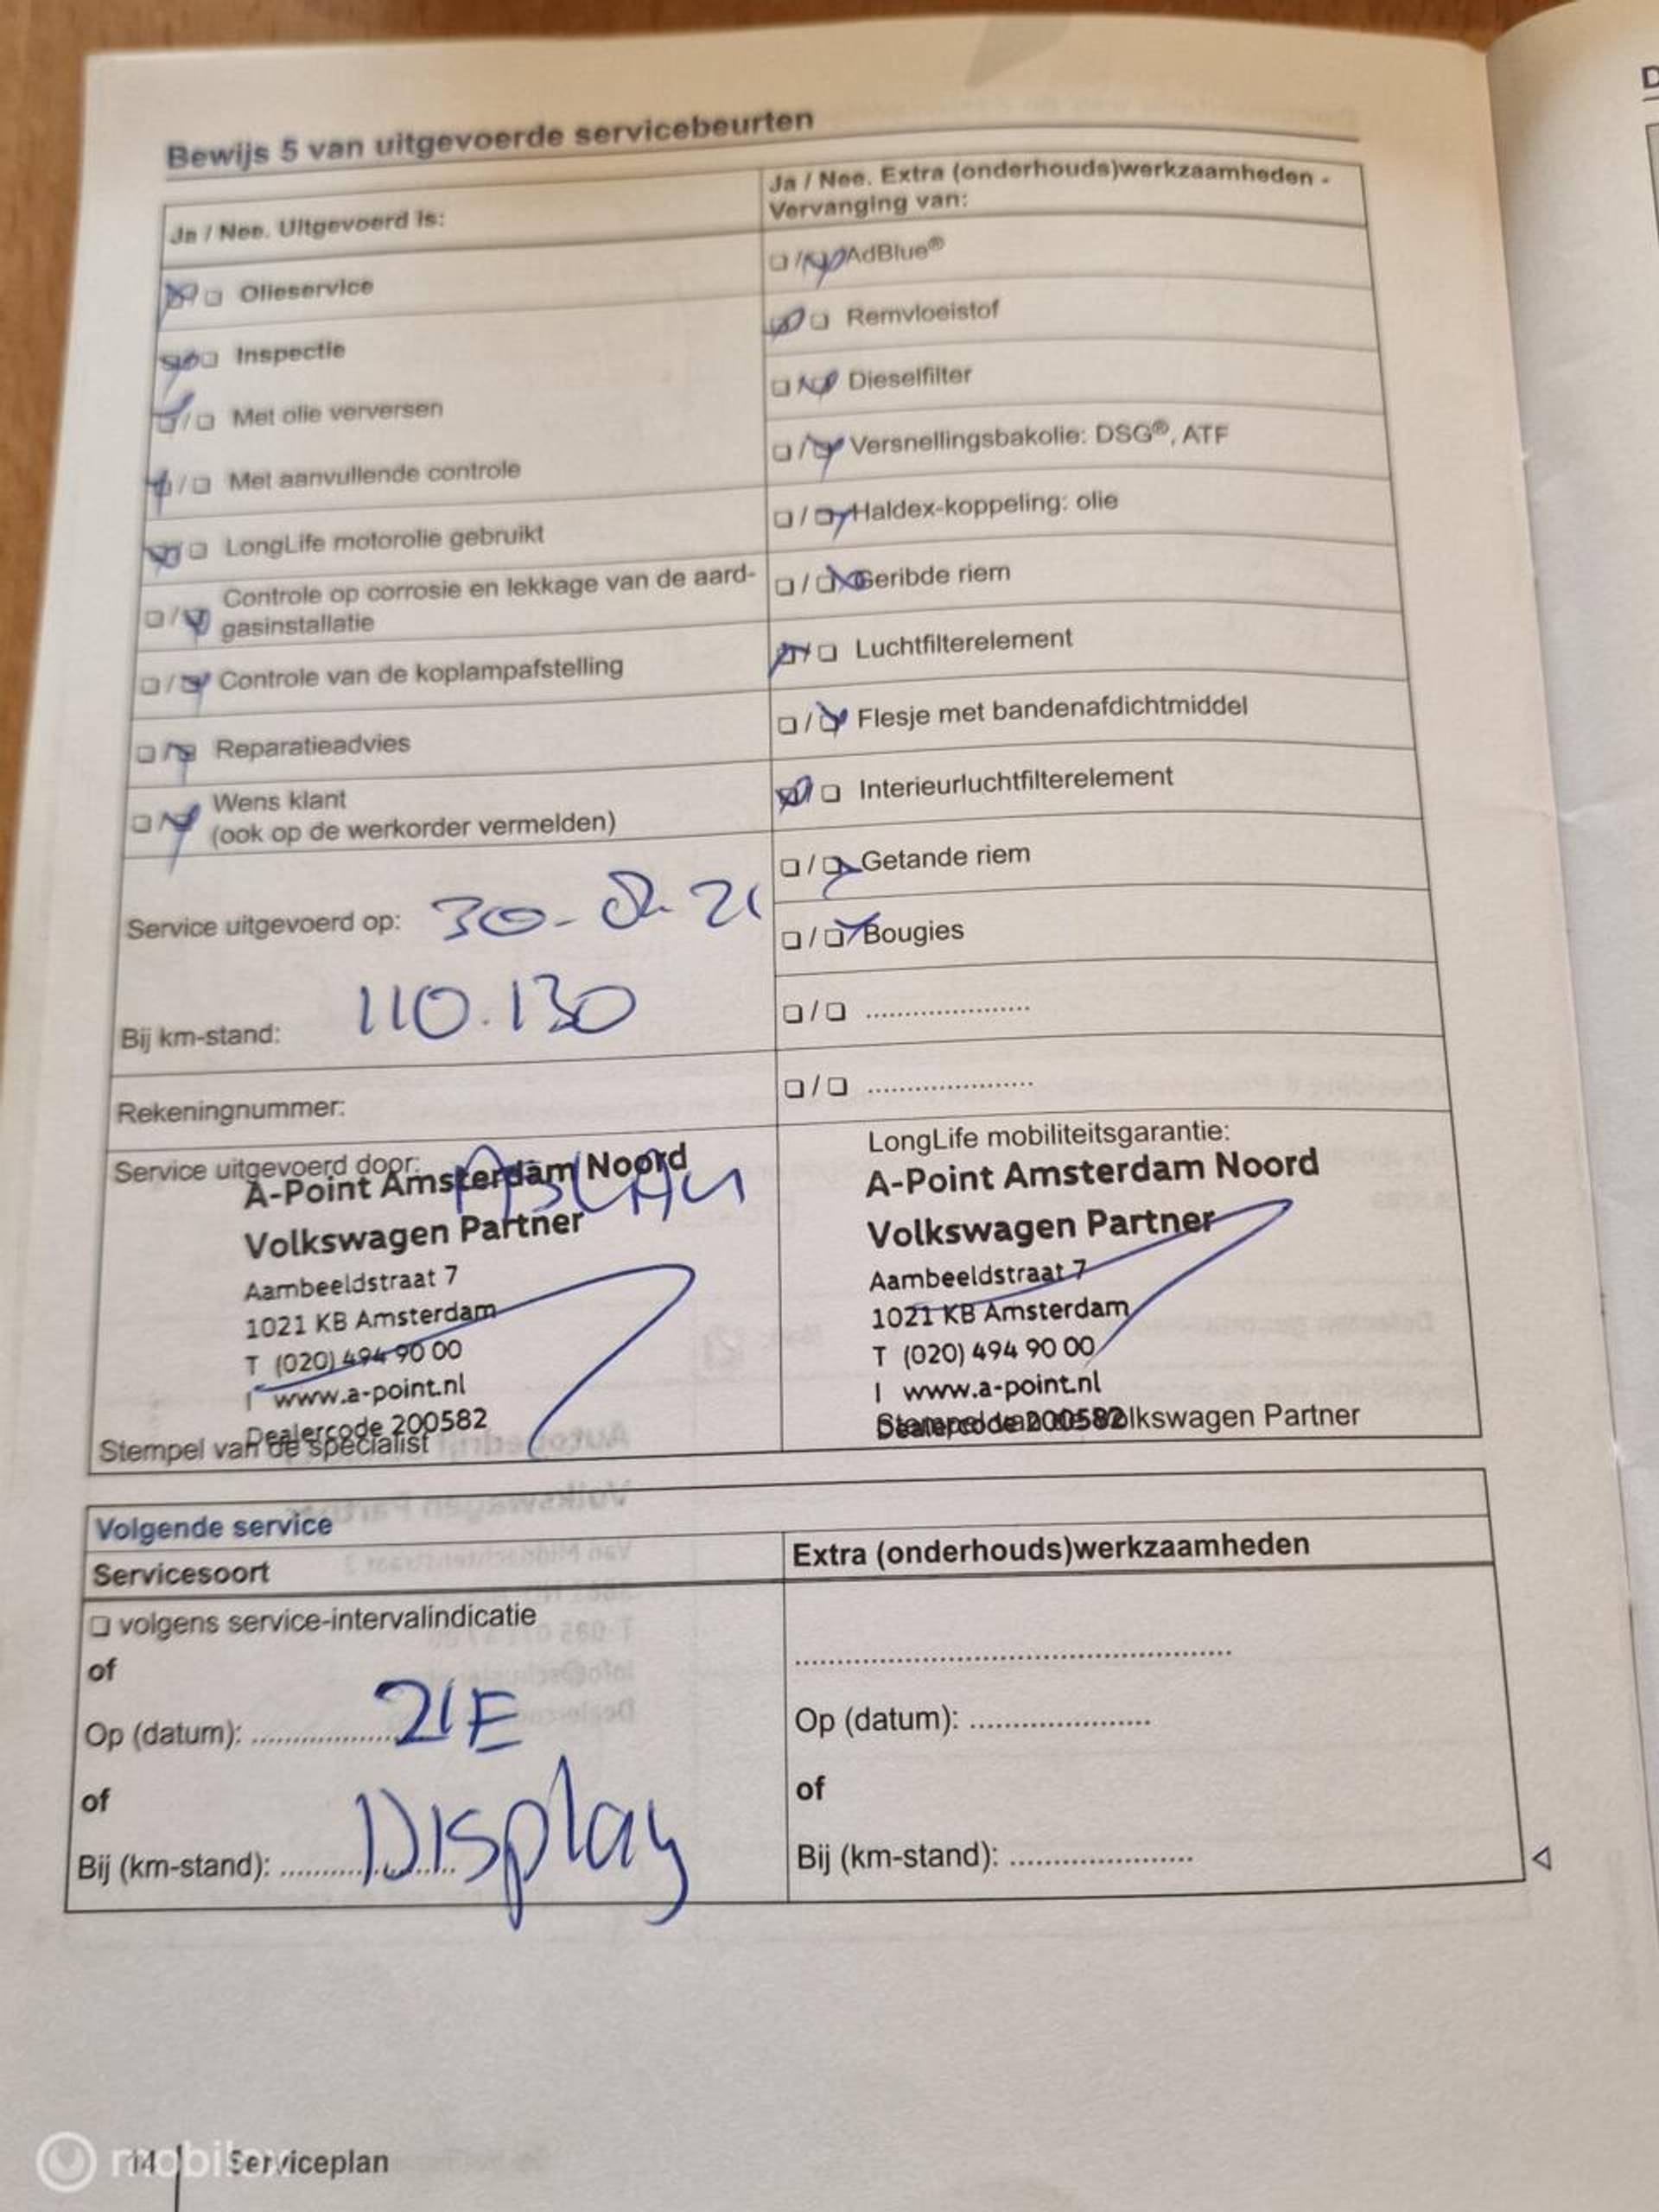 Bewijs 5 van uitgevoerde servicebeurten
Ja / Nee. Uitgevoerd is:
☐/☐ Olieservice
☐/☐ Inspectie
☐/☐ Met olie verversen
☐/☐ Met aanvullende controle
☐/☐ LongLife motorolie gebruikt
☐/☐ Controle op corrosie en lekkage van de aard-
gasinstallatie
☐/☐ Controle van de koplampafstelling
☐/☐ Reparatieadvies
☐/☐ Wens klant
(ook op de werkorder vermelden)
Service uitgevoerd op: 30-
Bij km-stand: 110.130
Rekeningnummer:
Service uitgevoerd door:
A-Point Amsterdam Noord
Volkswagen Partner
Aambeeldstraat 7
1021 KB Amsterdam
T (020) 494 90 00
I www.a-point.nl
Dealercode 200582
Stempel van de specialist
Ja / Nee. Extra (onderhouds)werkzaamheden -
Vervanging van:
☐/☐ AdBlue®
☐/☐ Remvloeistof
☐/☐ Dieselfilter
☐/☐ Versnellingsbakolie: DSG®, ATF
☐/☐ Haldex-koppeling: olie
☐/☐ Geribde riem
☐/☐ Luchtfilterelement
☐/☐ Flesje met bandenafdichtmiddel
☐/☐ Interieurluchtfilterelement
☐/☐ Getande riem
☐/☐ Bougies
☐/☐ ......................
☐/☐ ......................
LongLife mobiliteitsgarantie:
A-Point Amsterdam Noord
Volkswagen Partner
Aambeeldstraat 7
1021 KB Amsterdam
T (020) 494 90 00
I www.a-point.nl
Dealercode 200582
Stempel van de Volkswagen Partner
Volgende service
Servicesoort
☐ volgens service-intervalindicatie
of
Op (datum): .................. ZIE
of
Bij (km-stand): .................. Display
Extra (onderhouds)werkzaamheden
..................................................
Op (datum): .....................
of
Bij (km-stand): .....................
14 Serviceplan